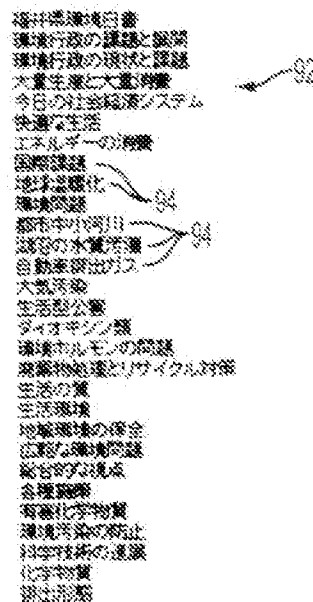 福井県環境白書
環境行政の課題と展開
環境行政の現状と課題
大量生産と大量消費
92
今日の社会経済システム
快適な生活
エネルギーの消費
国際課題
地球温暖化
94
環境問題
都市中小河川
94
湖沼の水質汚濁
自動車排出ガス
大気汚染
生活型公害
ダイオキシン類
環境ホルモンの問題
廃棄物処理とリサイクル対策
生活の質
生活環境
地域環境の保全
広範な環境問題
総合的な視点
各種施策
有害化学物質
環境汚染の防止
科学技術の進展
化学物質
排出形態